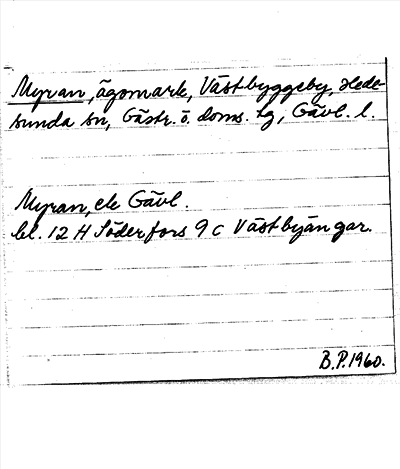 Myran, ägomark, Västbyggeby, Hede-
sunda sn, Gästr. ö. doms. tg, Gävl. l.
Myran, ek Gävl.
bl. 12 H Söderfors 9 c Västbyängar.
B.P. 1960.